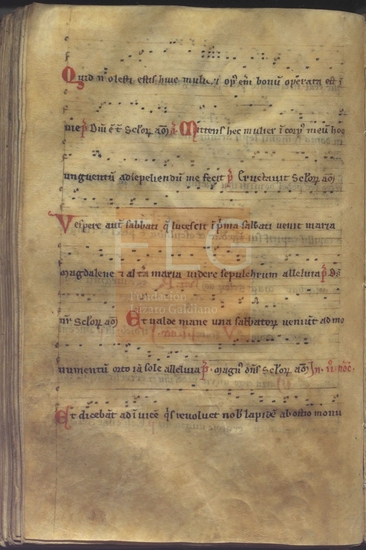 Quid moleſti eſtiſ huic mulieri opꝰ em̄ bonū operata eſt ī
me p̄ Dn̄i ē t̄ Sclorꝝ aō ā Mittenſ hec mulier ī corpꝰ meū hoc
unguentū ad ſepeliendū me fecit p̄ Eructauit Sclorꝝ aō
Veſpere aut̄ ſabbati q̄ luceſcit ī p̄ma ſabbati uenit maria
magdalene ⁊ alt̄a maria uidere ſepulchrum alleluia p̄ Dn̄ſ
nr̄ Sclorꝝ aō Et ualde mane una ſabbatorꝝ ueniūt ad mo
FLG
Fundación
Lázaro Galdiano
numentū orto iā ſole alleluia p̄ magnꝰ dn̄ſ Sclorꝝ aō In noc̄
Et dicebāt ad īuicē q̄ſ reuoluet nob̄ lapidē ab oſtio monu